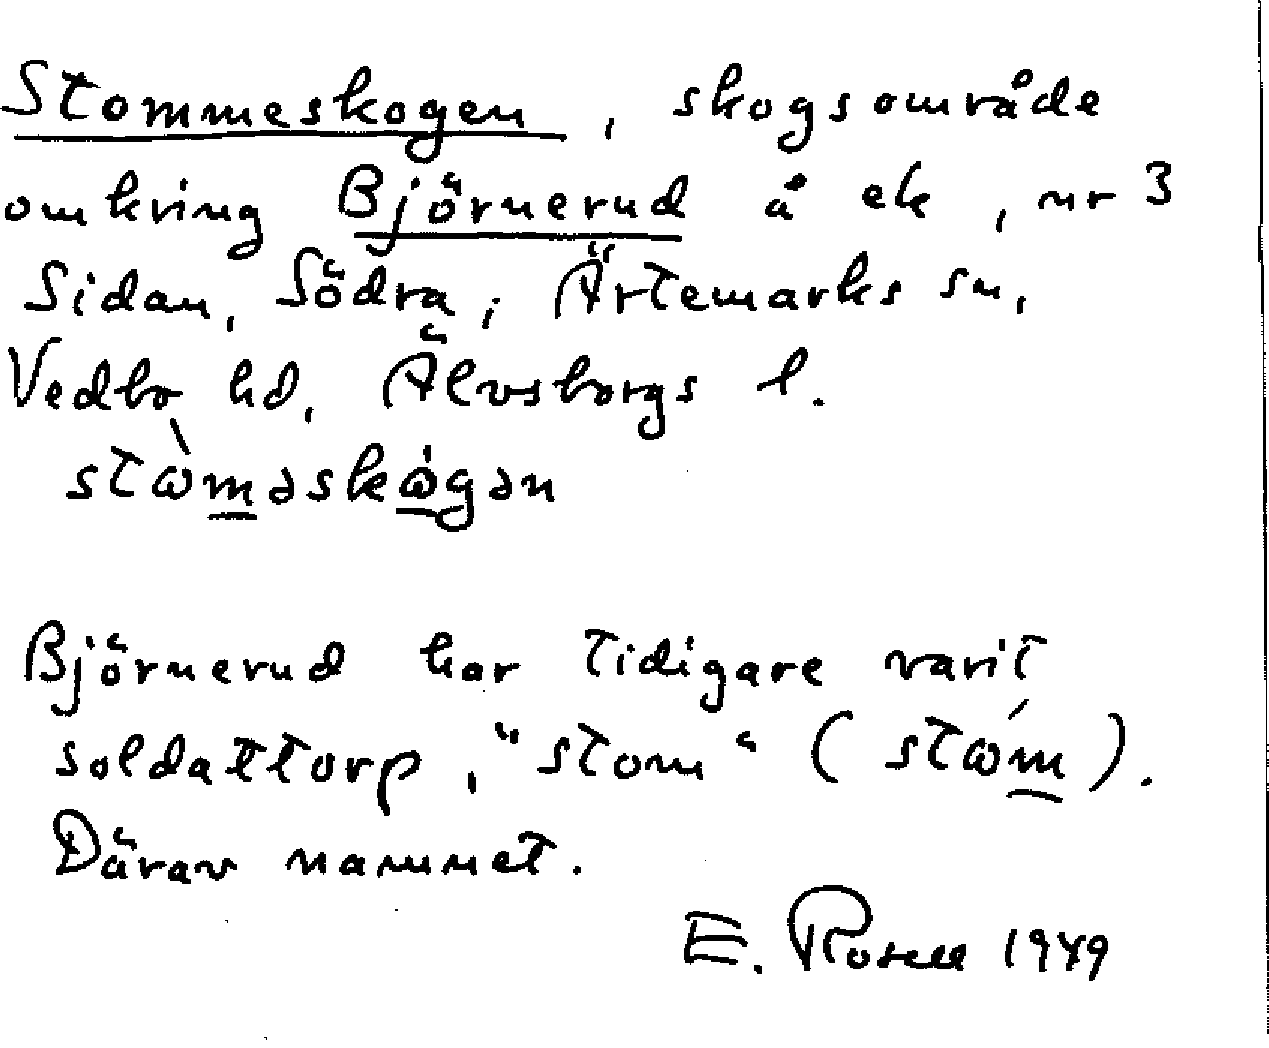 Stommeskogen, skogsområde
omkring Björnerud å ek, nr 3
Sidan, Södra, Ärtemarks sn,
Vedbo hd, Älvsborgs l.
stò̀məskɷ́gən
Björnerud har tidigare varit
soldattorp, "stom" (stɷ́m).
Därav namnet.
E. Rosell 1949